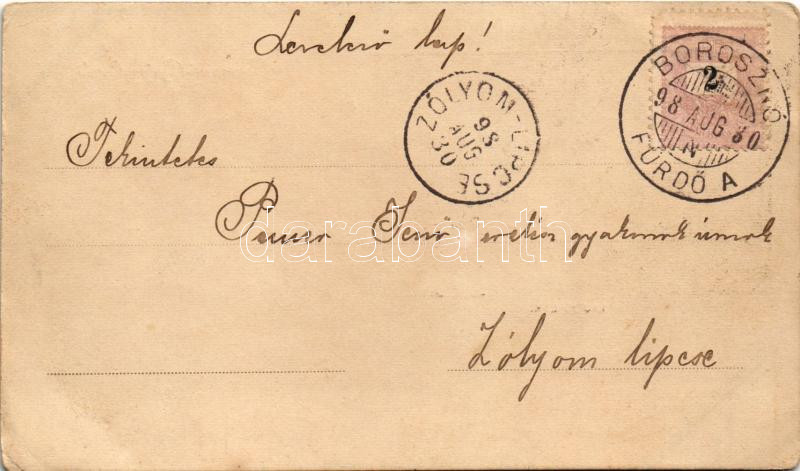 Levelező lap!
BOROSZNÓ
2
98 AUG 30
N
FÜRDŐ A
ZÓLYOM-LIPCSE
98
AUG
30
Tekintetes
Jenő gyakornok úrnak
darabanth
Zólyom lipcse